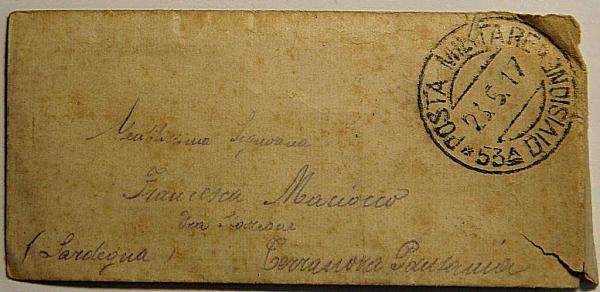 POSTA MILITARE
53A DIVISIONE
Gentilissima Signorina
Francesca Maciocco
Via
(Sardegna) Terranova Pausania